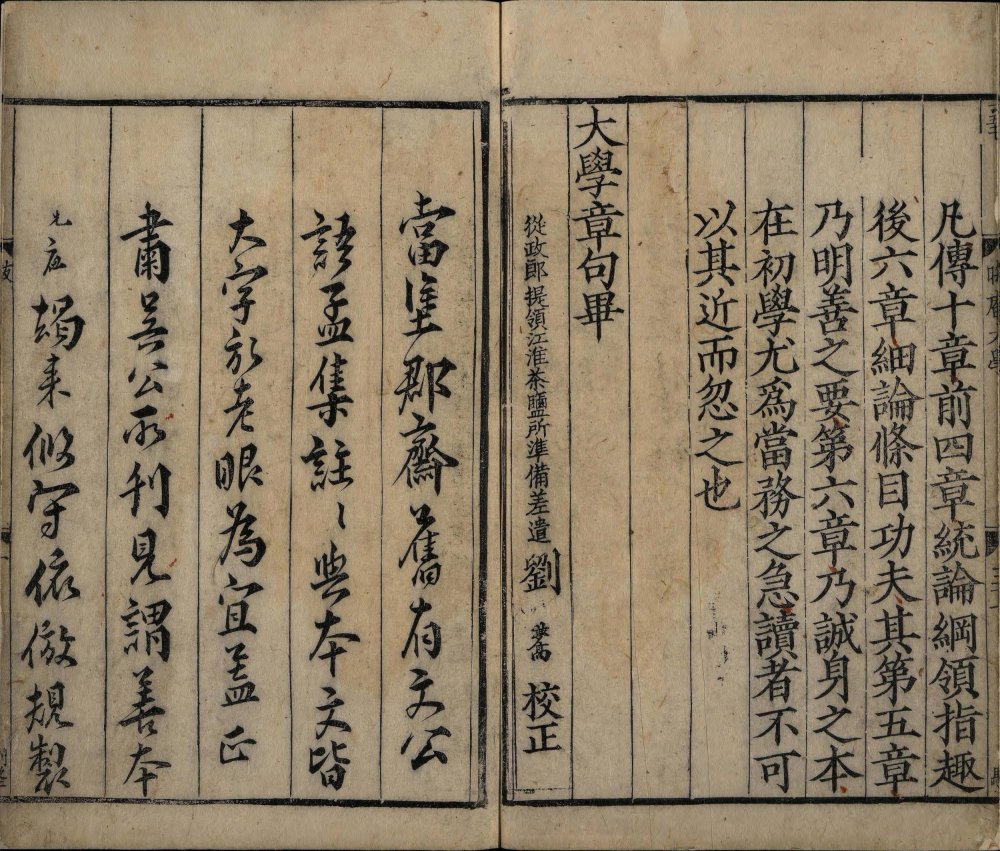 凡傳十章前四章統論綱領指趣
後六章細論條目功夫其第五章
乃明善之要第六章乃誠身之本
在初學尤為當務之急讀者不可
以其近而忽之也
大學章句畢
從政郎提領江淮茶鹽所準備差遣劉 校正
當塗郡齋舊有文公
語孟集註註與本文皆
大字於老眼為宜蓋正
肅吳公所刊見謂善本
光庭 來攸守依倣規製